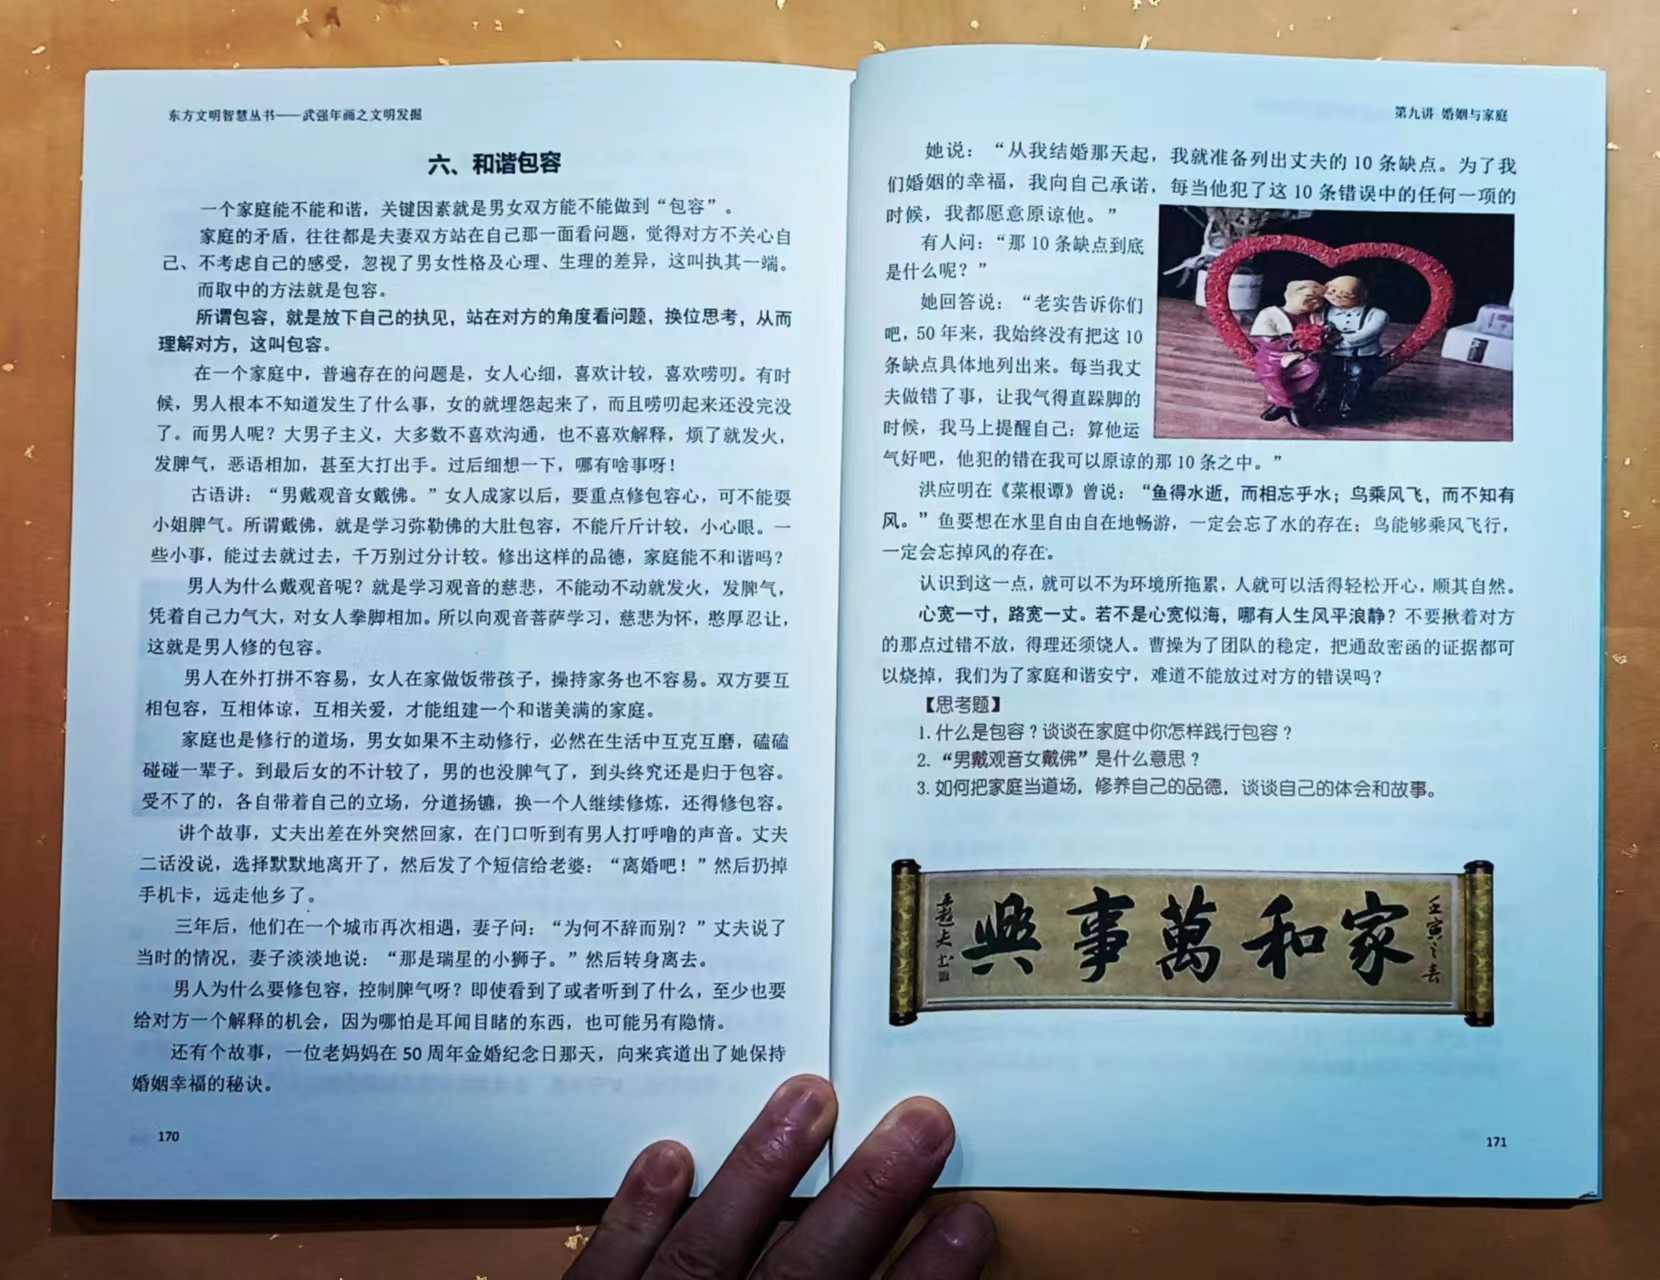 东方文明智慧丛书——武强年画之文明发掘
六、和谐包容
一个家庭能不能和谐，关键因素就是男女双方能不能做到“包容”。
家庭的矛盾，往往都是夫妻双方站在自己那一面看问题，觉得对方不关心自
己、不考虑自己的感受，忽视了男女性格及心理、生理的差异，这叫执其一端。
而取中的方法就是包容。
所谓包容，就是放下自己的执见，站在对方的角度看问题，换位思考，从而
理解对方，这叫包容。
在一个家庭中，普遍存在的问题是，女人心细，喜欢计较，喜欢唠叨。有时
候，男人根本不知道发生了什么事，女的就埋怨起来了，而且唠叨起来还没完没
了。而男人呢？大男子主义，大多数不喜欢沟通，也不喜欢解释，烦了就发火，
发脾气，恶语相加，甚至大打出手。过后细想一下，哪有啥事呀！
古语讲：“男戴观音女戴佛。”女人成家以后，要重点修包容心，可不能耍
小姐脾气。所谓戴佛，就是学习弥勒佛的大肚包容，不能斤斤计较，小心眼。一
些小事，能过去就过去，千万别过分计较。修出这样的品德，家庭能不和谐吗？
男人为什么戴观音呢？就是学习观音的慈悲，不能动不动就发火，发脾气，
凭着自己力气大，对女人拳脚相加。所以向观音菩萨学习，慈悲为怀，憨厚忍让，
这就是男人修的包容。
男人在外打拼不容易，女人在家做饭带孩子，操持家务也不容易。双方要互
相包容，互相体谅，互相关爱，才能组建一个和谐美满的家庭。
家庭也是修行的道场，男女如果不主动修行，必然在生活中互克互磨，磕磕
碰碰一辈子。到最后女的不计较了，男的也没脾气了，到头终究还是归于包容。
受不了的，各自带着自己的立场，分道扬镳，换一个人继续修炼，还得修包容。
讲个故事，丈夫出差在外突然回家，在门口听到有男人打呼噜的声音。丈夫
二话没说，选择默默地离开了，然后发了个短信给老婆：“离婚吧！”然后扔掉
手机卡，远走他乡了。
三年后，他们在一个城市再次相遇，妻子问：“为何不辞而别？”丈夫说了
当时的情况，妻子淡淡地说：“那是瑞星的小狮子。”然后转身离去。
男人为什么要修包容，控制脾气呀？即使看到了或者听到了什么，至少也要
给对方一个解释的机会，因为哪怕是耳闻目睹的东西，也可能另有隐情。
还有个故事，一位老妈妈在50周年金婚纪念日那天，向来宾道出了她保持
婚姻幸福的秘诀。
170
第九讲 婚姻与家庭
她说：“从我结婚那天起，我就准备列出丈夫的10条缺点。为了我
们婚姻的幸福，我向自己承诺，每当他犯了这10条错误中的任何一项的
时候，我都愿意原谅他。”
有人问：“那10条缺点到底
是什么呢？”
她回答说：“老实告诉你们
吧，50年来，我始终没有把这10
条缺点具体地列出来。每当我丈
夫做错了事，让我气得直跺脚的
时候，我马上提醒自己：算他运
气好吧，他犯的错在我可以原谅的那10条之中。”
洪应明在《菜根谭》曾说：“鱼得水逝，而相忘乎水；鸟乘风飞，而不知有
风。”鱼要想在水里自由自在地畅游，一定会忘了水的存在；鸟能够乘风飞行，
一定会忘掉风的存在。
认识到这一点，就可以不为环境所拖累，人就可以活得轻松开心，顺其自然。
心宽一寸，路宽一丈。若不是心宽似海，哪有人生风平浪静？不要揪着对方
的那点过错不放，得理还须饶人。曹操为了团队的稳定，把通敌密函的证据都可
以烧掉，我们为了家庭和谐安宁，难道不能放过对方的错误吗？
【思考题】
1. 什么是包容？谈谈在家庭中你怎样践行包容？
2. “男戴观音女戴佛”是什么意思？
3. 如何把家庭当道场，修养自己的品德，谈谈自己的体会和故事。
壬寅之春
家和萬事興
171